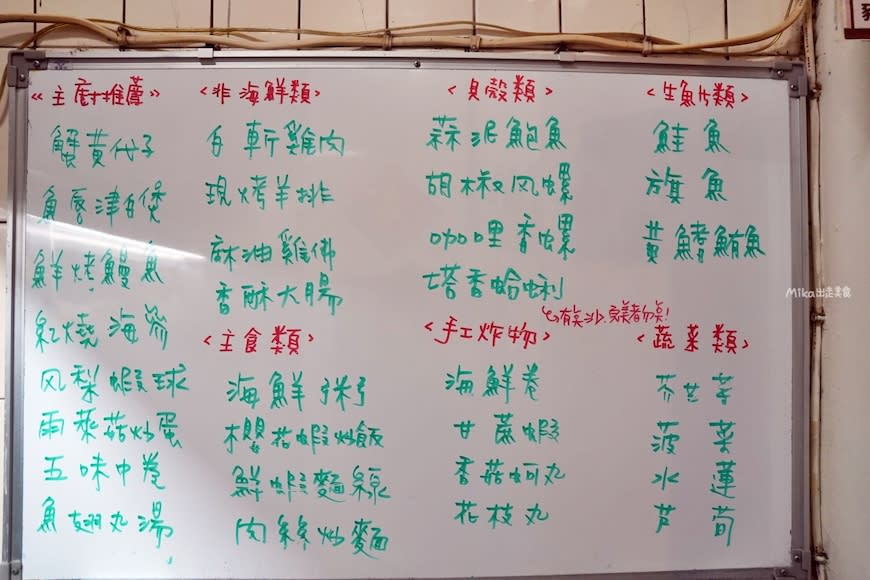 《主廚推薦》
蟹黃代子
魚唇津白煲
鮮烤鰻魚
紅燒海參
风梨蝦球
雨來菇炒蛋
五味中卷
魚翅丸湯
〈非海鮮類〉
白斬雞肉
現烤羊排
麻油雞佛
香酥大腸
〈主食類〉
海鮮粥
櫻花蝦炒飯
鮮蝦麵線
肉絲炒麵
〈貝殼類〉
蒜泥鮑魚
胡椒风螺
咖哩香螺
塔香蛤蜊
有吳沙.完美者勿点!
〈手工炸物〉
海鮮卷
甘蔗蝦
香菇蚵丸
花枝丸
〈生魚片類〉
鮭魚
旗魚
黃鰭鮪魚
〈蔬菜類〉
芥兰菜
菠菜
水蓮
芦荀
Mika出走美食